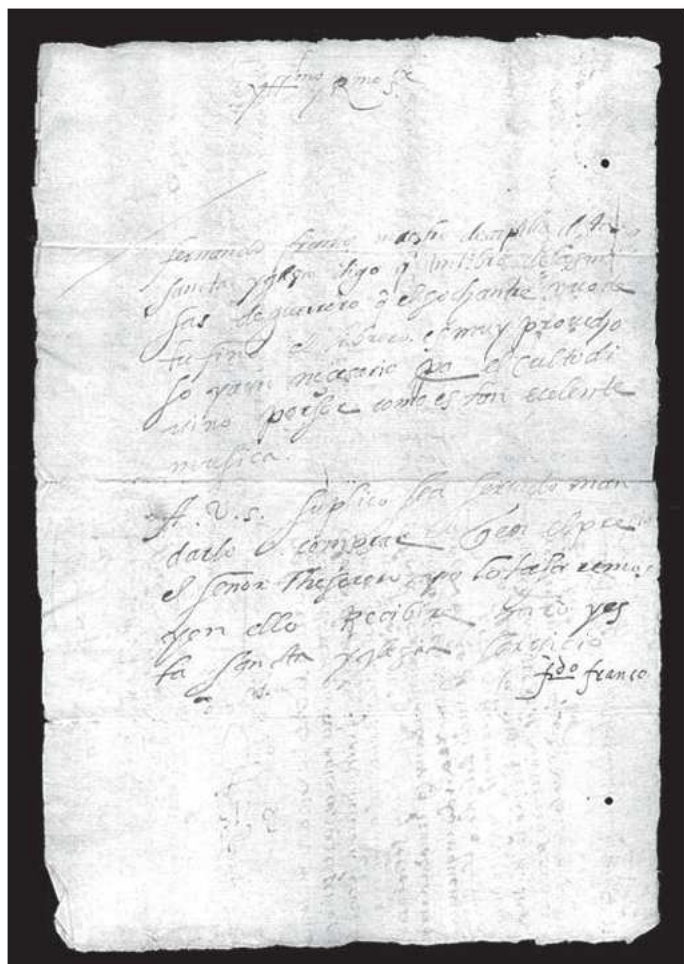 Yllmo y Rmo S.or
fernando franco maestro de capilla desta
sancta yglesia digo q̄ un libro de las mi
sas de guerrero q̄ el sochantre
el librero es muy provecho
so y aun necesario pa el culto di
vino por ser como es tan ecelente
musica.
A. V. S. suplico sea servido man
darlo comprar q̄ en el precio
el señor Thesorero e yo lo tasaremos
y en ello Recibire y es
ta sancta yglesia servicio
f.do franco